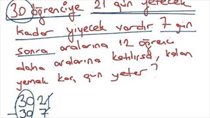 30 öğrenciye 21 gün yetecek
kadar yiyecek vardır 7 gün
sonra aralarına 12 öğrenci
daha aralarına katılırsa, kalan
yemek kaç gün yeter?
30 21
- 30 7